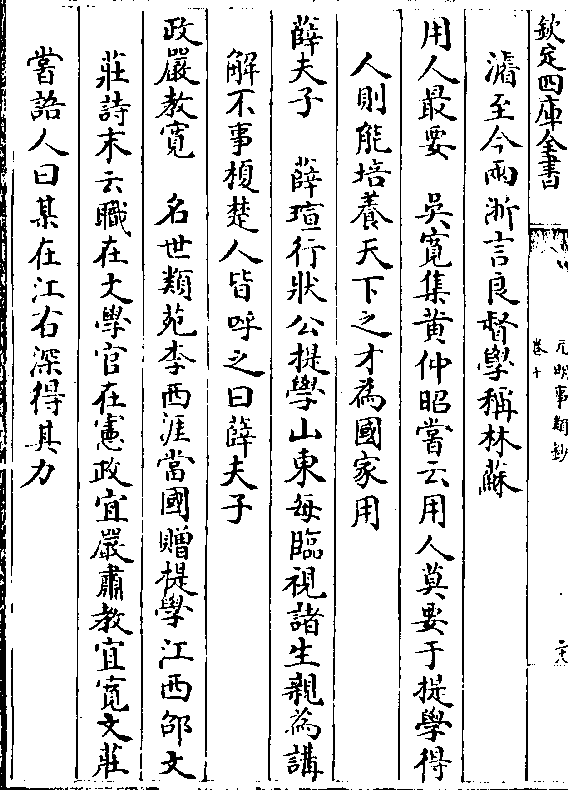 欽定四庫全書
元明事類鈔
卷十
濬至今兩浙言良督學稱林蘇
用人最要　吳寛集黄仲昭嘗云用人莫要于提學得
人則能培養天下之才為國家用
薛夫子　薛瑄行狀公提學山東每臨視諸生親為講
解不事榎楚人皆呼之曰薛夫子
政嚴教寛　名世類苑李西涯當國贈提學江西邵文
莊詩末云職在文學官在憲政宜嚴肅教宜寛文莊
嘗語人曰某在江右深得其力